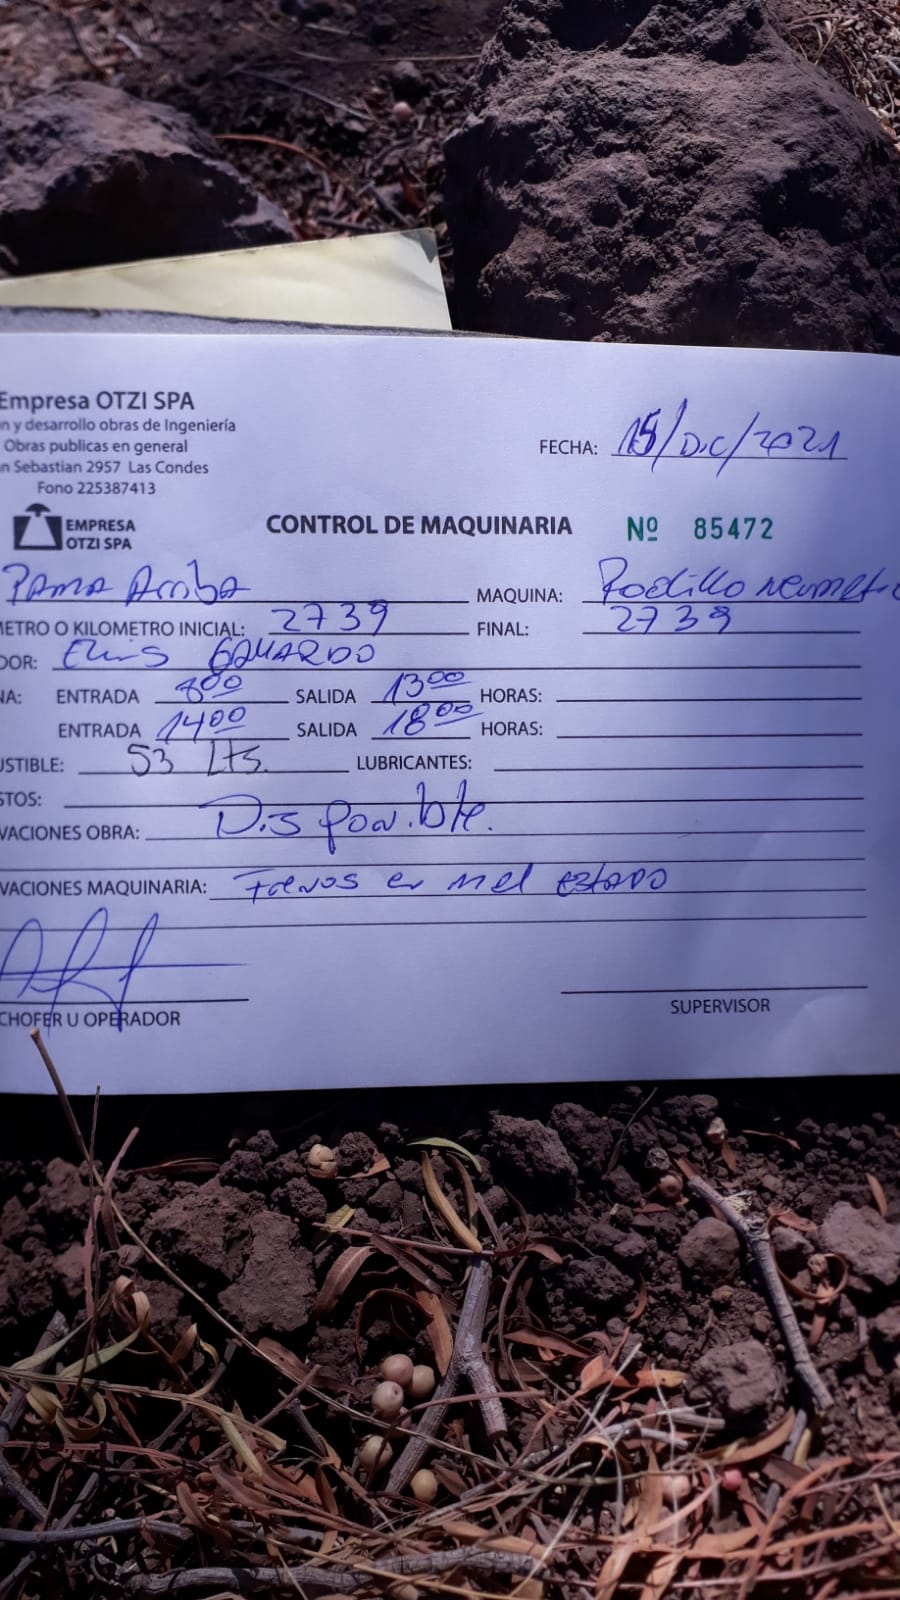 Empresa OTZI SPA
n y desarrollo obras de Ingeniería
Obras publicas en general
n Sebastian 2957 Las Condes
Fono 225387413
FECHA: 15/Dic/2021
EMPRESA
OTZI SPA
CONTROL DE MAQUINARIA Nº 85472
Pama Arriba MAQUINA: Rodillo
METRO O KILOMETRO INICIAL: 2739 FINAL: 2739
DOR: EDUARDO
NA: ENTRADA 800 SALIDA 1300 HORAS:
ENTRADA 1400 SALIDA 1800 HORAS:
USTIBLE: 53 Lts. LUBRICANTES:
STOS:
VACIONES OBRA: Disponible.
VACIONES MAQUINARIA: Frenos en mal estado
CHOFER U OPERADOR SUPERVISOR